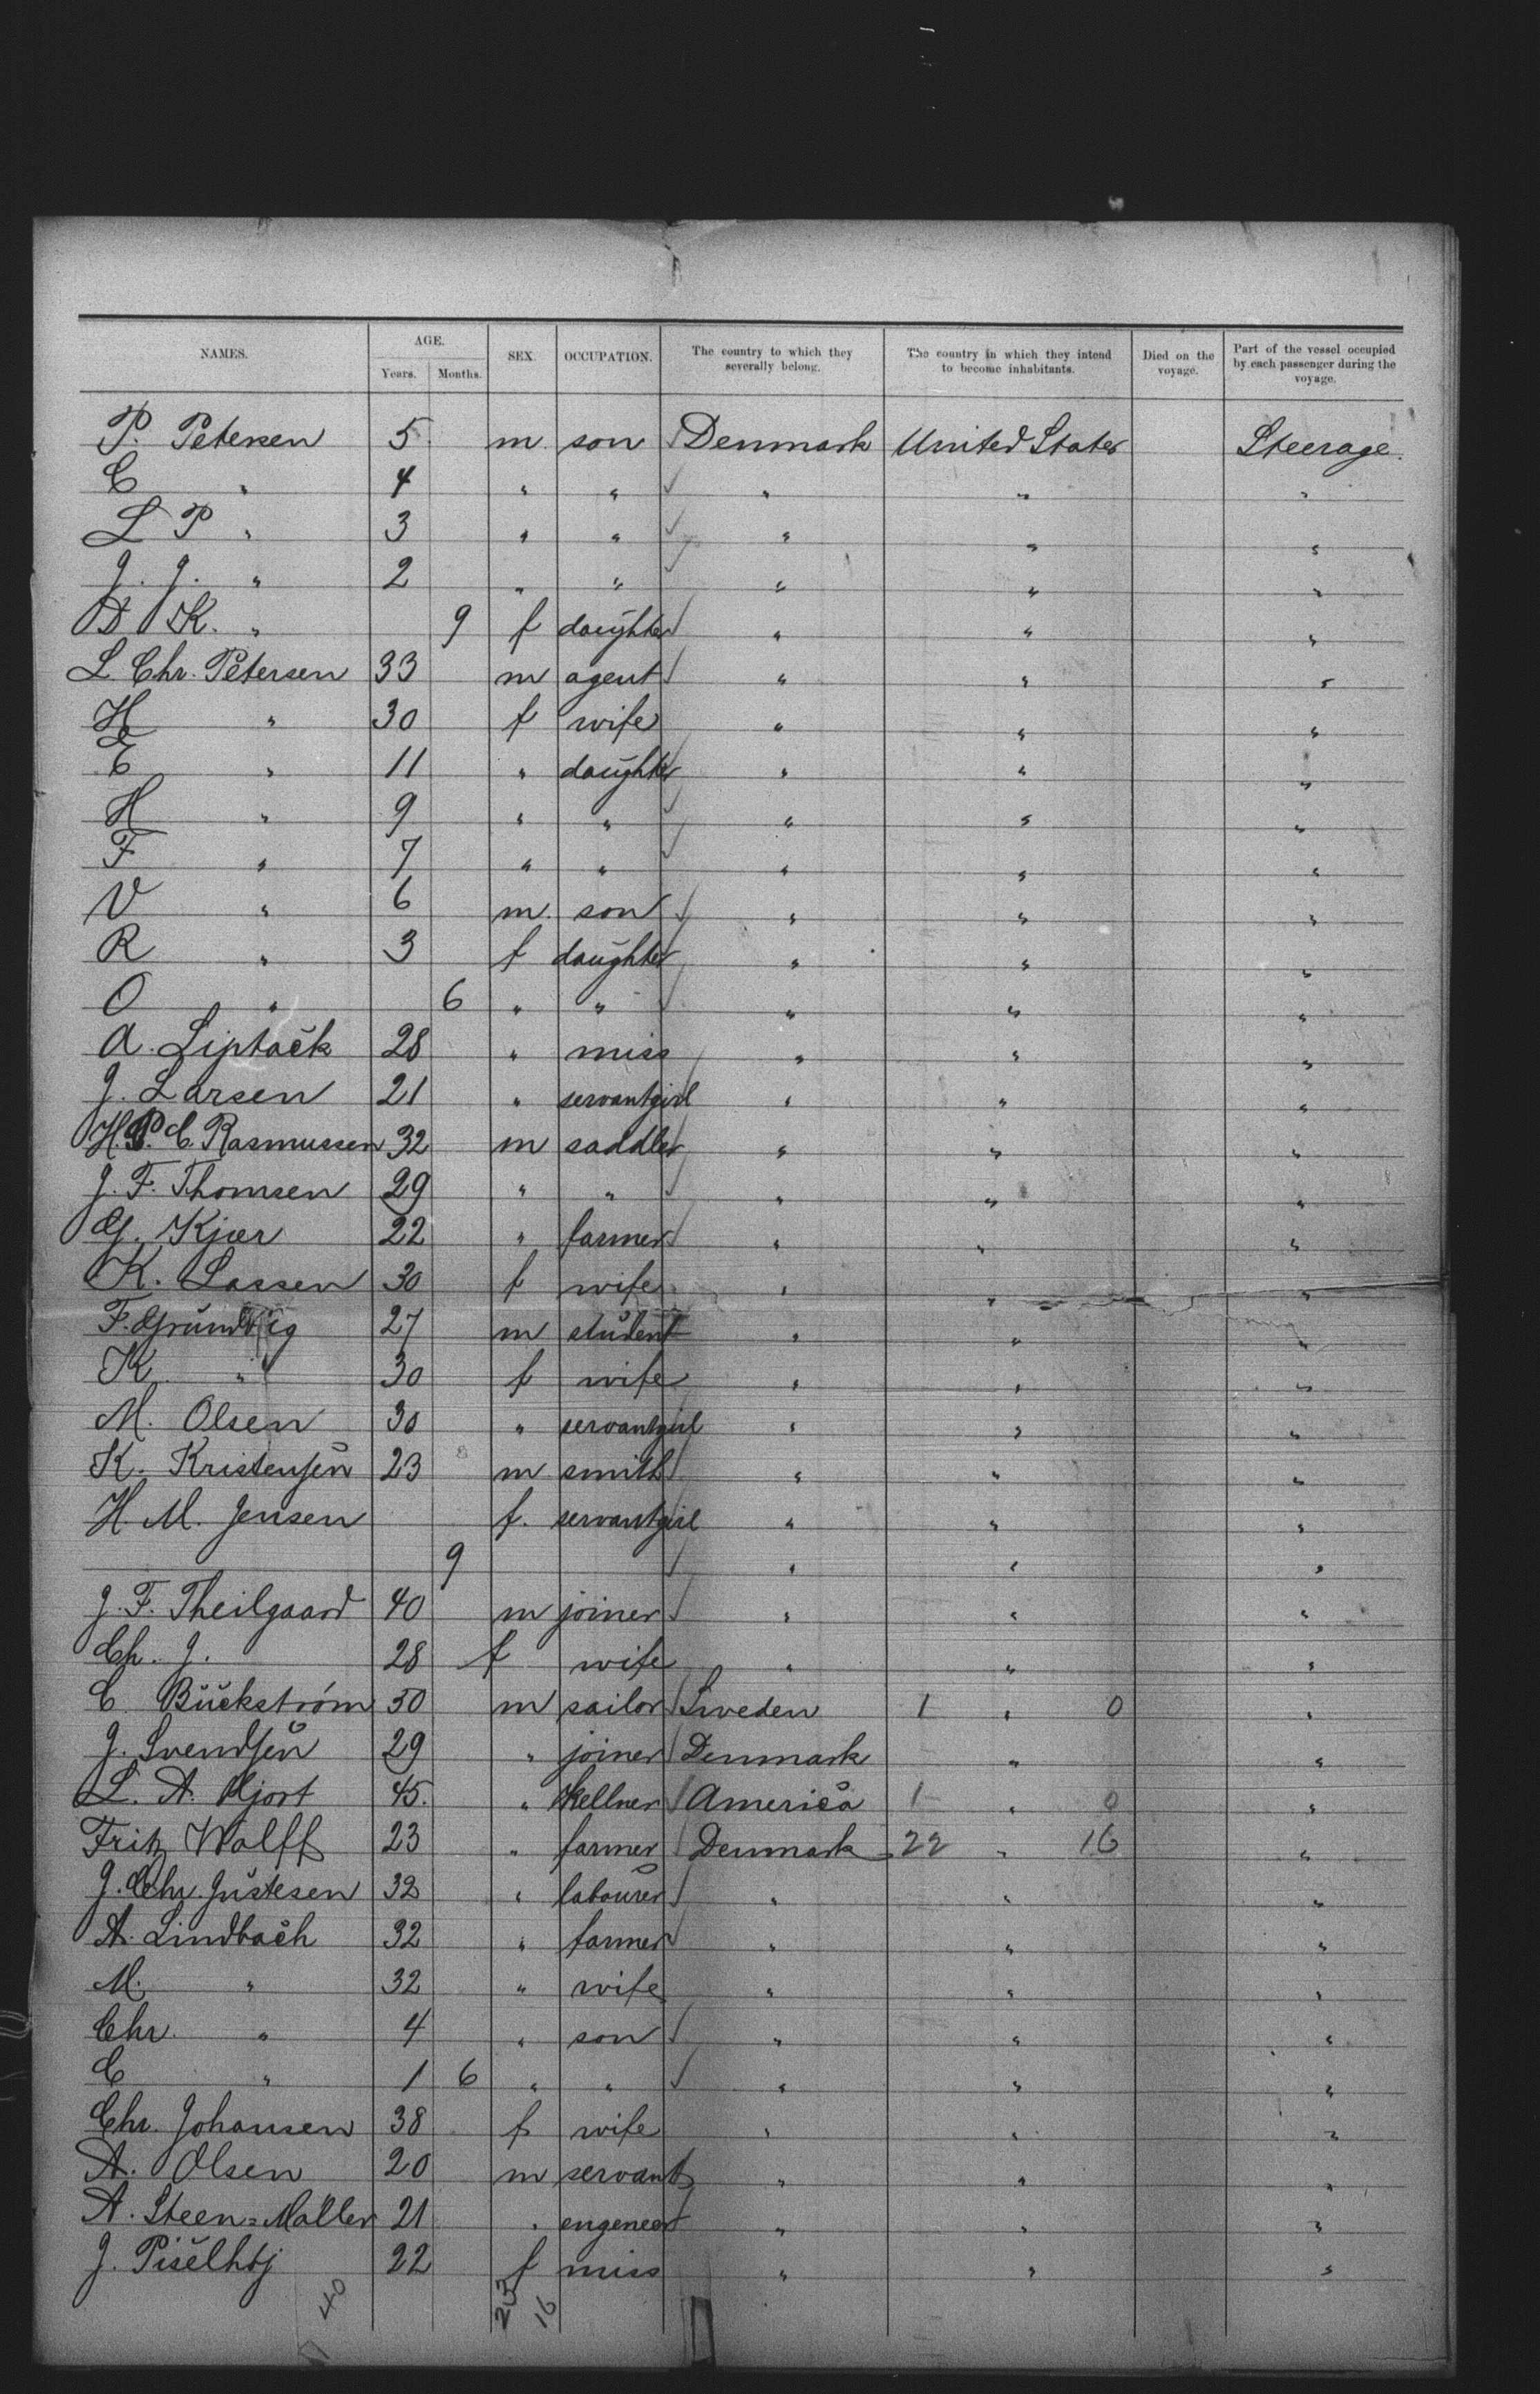 NAMES. AGE. SEX. OCCUPATION. The country to which they severally belong. The country in which they intend to become inhabitants. Died on the voyage. Part of the vessel occupied by each passenger during the voyage.
Years. Months.
P. Petersen 5 m son Denmark United States Steerage.
C " 4 " " " " "
L P " 3 " " " " "
J. J. " 2 " " " " "
D K. " 9 f daughter " " "
L Chr. Petersen 33 m agent " " "
H " 30 f wife " " "
E " 11 " daughter " " "
H " 9 " " " " "
F " 7 " " " " "
V " 6 m. son " " "
R " 3 f daughter " " "
O " 6 " " " " "
A. Liptack 28 " miss " " "
J. Larsen 21 " servantgirl " " "
H. P. C. Rasmussen 32 m saddler " " "
J. F. Thomsen 29 " " " " "
G. Kjær 22 " farmer " " "
K. Lassen 30 f wife " " "
F. Grundvig 27 m student " " "
K " 30 f wife " " "
M. Olsen 30 " servantgirl " " "
K. Kristensen 23 m smith " " "
H. M. Jensen f. servantgirl " " "
9 " " "
J. F. Theilgaard 40 m joiner " " "
Ch. J. 28 f wife " " "
C Bückström 50 m sailor Sweden 1 " 0 "
J. Svendsen 29 " joiner Denmark " "
L. A. Hjort 45. " Kellner America 1 " 0 "
Fritz Wolff 23 " farmer Denmark 22 " 16 "
J. Chr. Justesen 32 " labourer " " "
A. Lindbach 32 " farmer " " "
M. " 32 " wife " " "
Chr. " 4 " son " " "
C " 1 6 " " " " "
Chr. Johansen 38 f wife " " "
A. Olsen 20 m servant " " "
A. Steen=Møller 21 " engeneer " " "
J. 22 f miss " " "
40 16